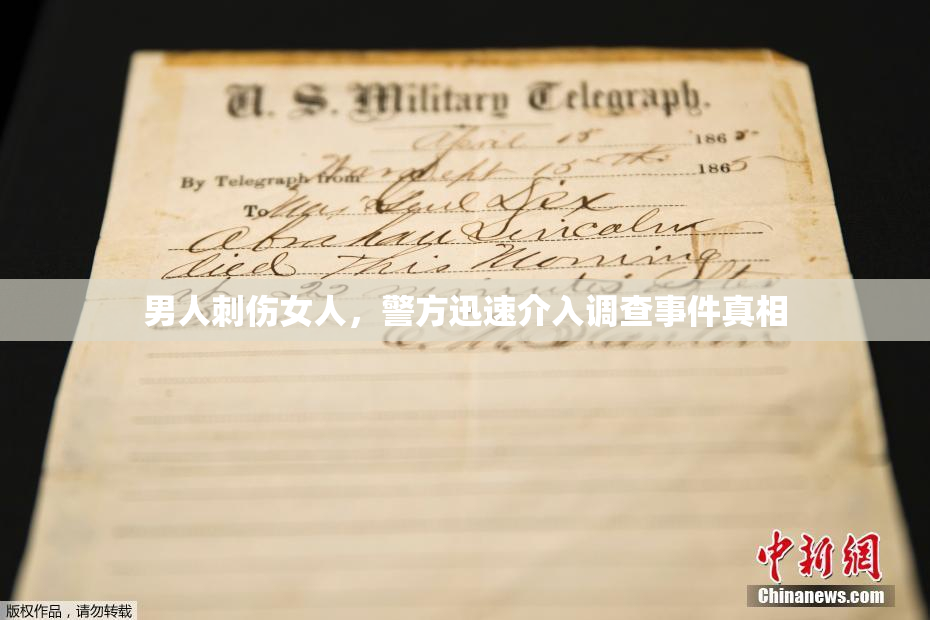 U. S. Military Telegraph.
April 15 1865
By Telegraph from War Dept 15th 1865
To Maj Genl Dix
Abraham Lincoln
died This Morning
at 22 minutes after
男人刺伤女人，警方迅速介入调查事件真相
E. M. Stanton
中新网
Chinanews.com
版权作品，请勿转载